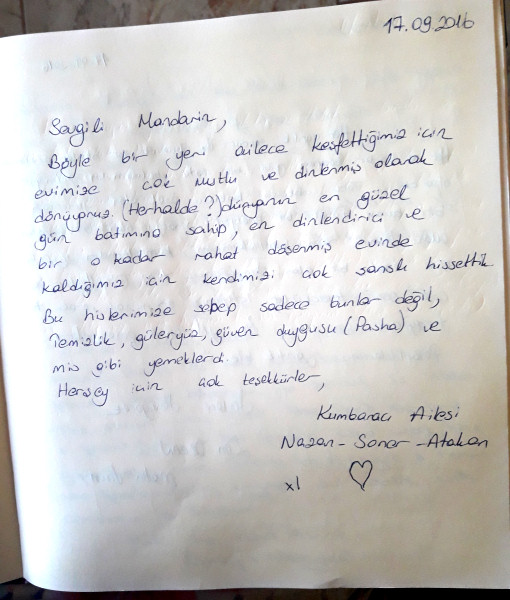 17.09.2016
Sevgili Mandarin,
Böyle bir yeri ailece keşfettiğimiz için
evimize çok mutlu ve dinlenmiş olarak
dönüyoruz. (Herhalde?) dünyanın en güzel
gün batımına sahip, en dinlendirici ve
bir o kadar rahat döşenmiş evinde
kaldığımız için kendimizi çok şanslı hissettik
Bu hislerimize sebep sadece bunlar değil,
Temizlik, güleryüz, güven duygusu (Pasha) ve
mis gibi yemeklerdi.
Herşey için çok teşekkürler,
Kumbaracı Ailesi
Nazan - Soner - Atakan